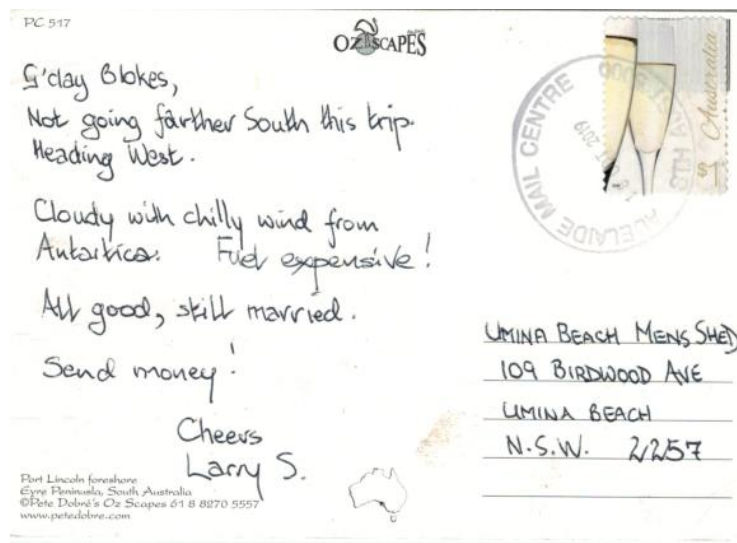 PC 517
OZ SCAPES
G'day Blokes,
Not going farther South this trip.
Heading West.
Cloudy with chilly wind from
Antartica. Fuel expensive!
All good, still married.
Send money!
Cheers
Larry S.
Port Lincoln foreshore
Eyre Peninusla, South Australia
©Pete Dobré's Oz Scapes 61 8 8270 5557
www.petedobre.com
$1 Australia
ADELAIDE MAIL CENTRE
2019
UMINA BEACH MENS SHED
109 BIRDWOOD AVE
UMINA BEACH
N.S.W. 2257